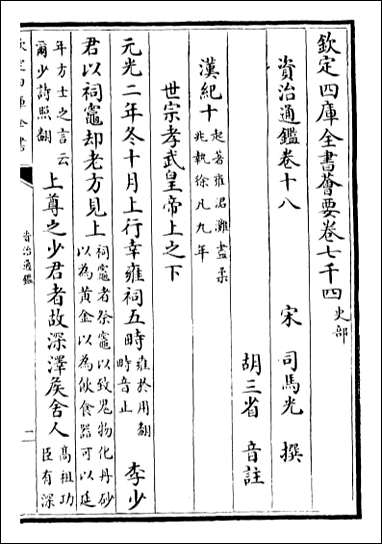 欽定四庫全書薈要卷七千四 史部
資治通鑑卷十八
宋 司馬光 撰
胡三省 音註
漢紀十 起著雍涒灘盡柔
兆執徐凡九年
世宗孝武皇帝上之下
元光二年冬十月上行幸雍祠五畤 雍於用翻
畤音止 李少
君以祠竈却老方見上 祠竈者祭竈以致鬼物化丹砂
以為黄金以為飲食器可以延
年方士之言云
爾少詩照翻 上尊之少君者故深澤侯舍人 髙祖功
臣有深
欽定四庫全書
資治通鑑
一